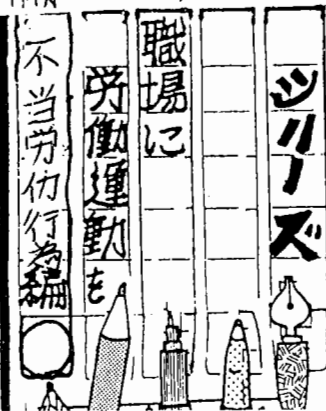 シリーズ
職場に
労働運動を
不当労仂行為編